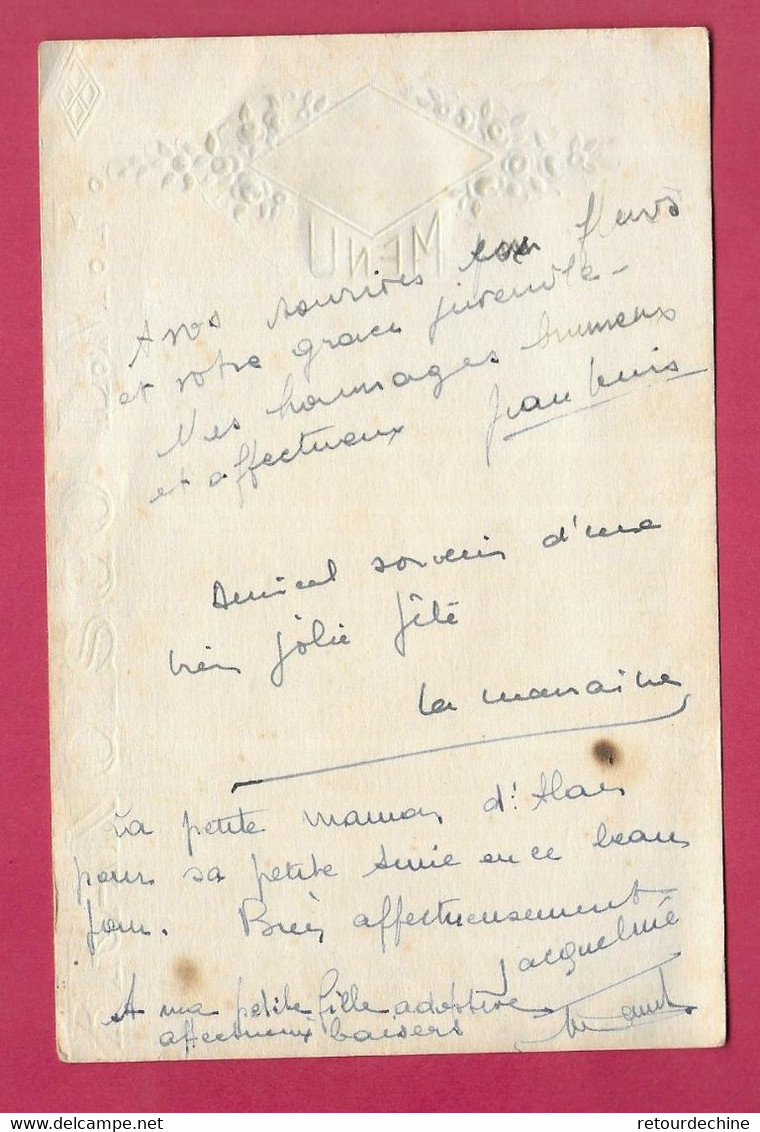 MENU
A vos sourires fleurs
et votre grace juvenile -
Mes hommages brumeux
et affectueux Jean Louis
Amical souvenir d'une
très jolie fête
La marraine
La petite maman d'Alain
pour sa petite Amie en ce beau
jour. Bien affectueusement
Jacqueline
A ma petite fille adoptive
affectueux baisers
delcampe.net
retourdechine